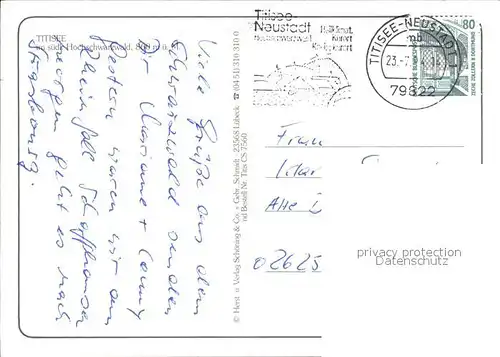 TITISEE
im südl. Hochschwarzwald, 860 m ü.
Viele Grüße aus dem
Schwarzwald senden
Dir Marianne + Conny
Gestern waren wir am
Rheinfall Schaffhausen
morgen geht es nach
Strasbourg.
© Horst u. Verlag Schöning & Co. + Gebr. Schmidt · 23568 Lübeck · ☎ (0451) 310 310 0
Bestell Nr. Titis CS 7560
Titisee-
Neustadt
Kurort
TITISEE-NEUSTADT 1
mb
23.-7.
79822
80
DEUTSCHE BUNDESPOST
ZECHE ZOLLERN II DORTMUND
Frau
Alte
02625
privacy protection
Datenschutz